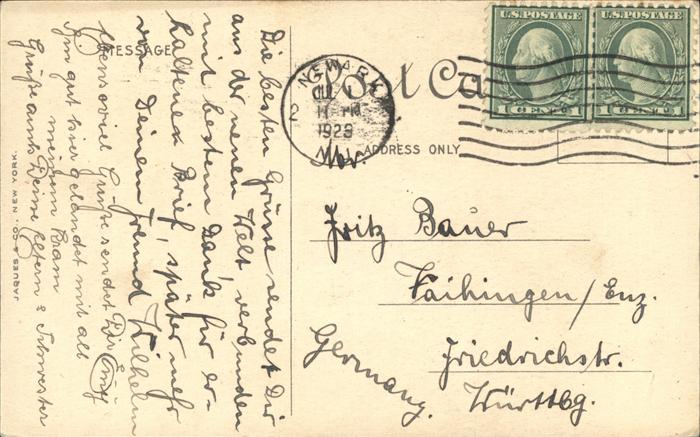 MESSAGE
Post Card
ADDRESS ONLY
U.S. POSTAGE
1 CENT 1
U.S. POSTAGE
1 CENT 1
NEWARK
JUL
2
11 PM
1923
N.J.
Fritz Bauer
Vaihingen/Enz.
Friedrichstr.
Württbg.
Germany.
Die besten Grüsse sendet Dir
aus der neuen Welt verbunden
mit bestem Dank für er-
haltenen Brief, später mehr
von Deinem Freund Wilhelm
Ebensoviel Grüße sendet Dir Emy
Bin gut hier gelandet mit all
meinem Kram
Grüße auch Deine Eltern & Schwester
& CO. NEW YORK.